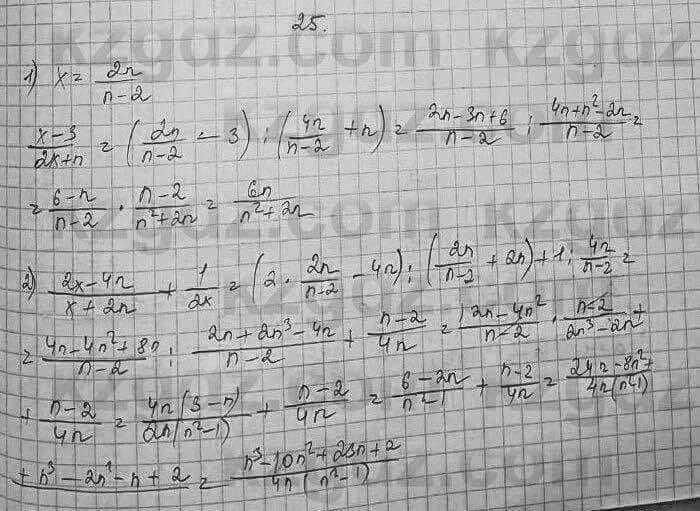 25.
1) x = 2n/(n-2)
(x-3)/(2x+n) = (2n/(n-2) - 3) : (4n/(n-2) + n) = (2n-3n+6)/(n-2) : (4n+n²-2n)/(n-2) =
= (6-n)/(n-2) · (n-2)/(n²+2n) = 6n/(n²+2n)
2) (2x-4n)/(x+2n) + 1/(2x) = (2 · 2n/(n-2) - 4n) : (2n/(n-2) + 2n) + 1 : 4n/(n-2) =
= (4n-4n²+8n)/(n-2) : (2n+2n³-4n)/(n-2) + (n-2)/(4n) = (12n-4n²)/(n-2) · (n-2)/(2n³-2n) +
+ (n-2)/(4n) = 4n(3-n)/(2n(n²-1)) + (n-2)/(4n) = (6-2n)/(n²-1) + (n-2)/(4n) = (24n-8n²+)/(4n(n²-1))
+ n³-2n²-n+2 = (n³-10n²+23n+2)/(4n(n²-1))
kzgdz.com